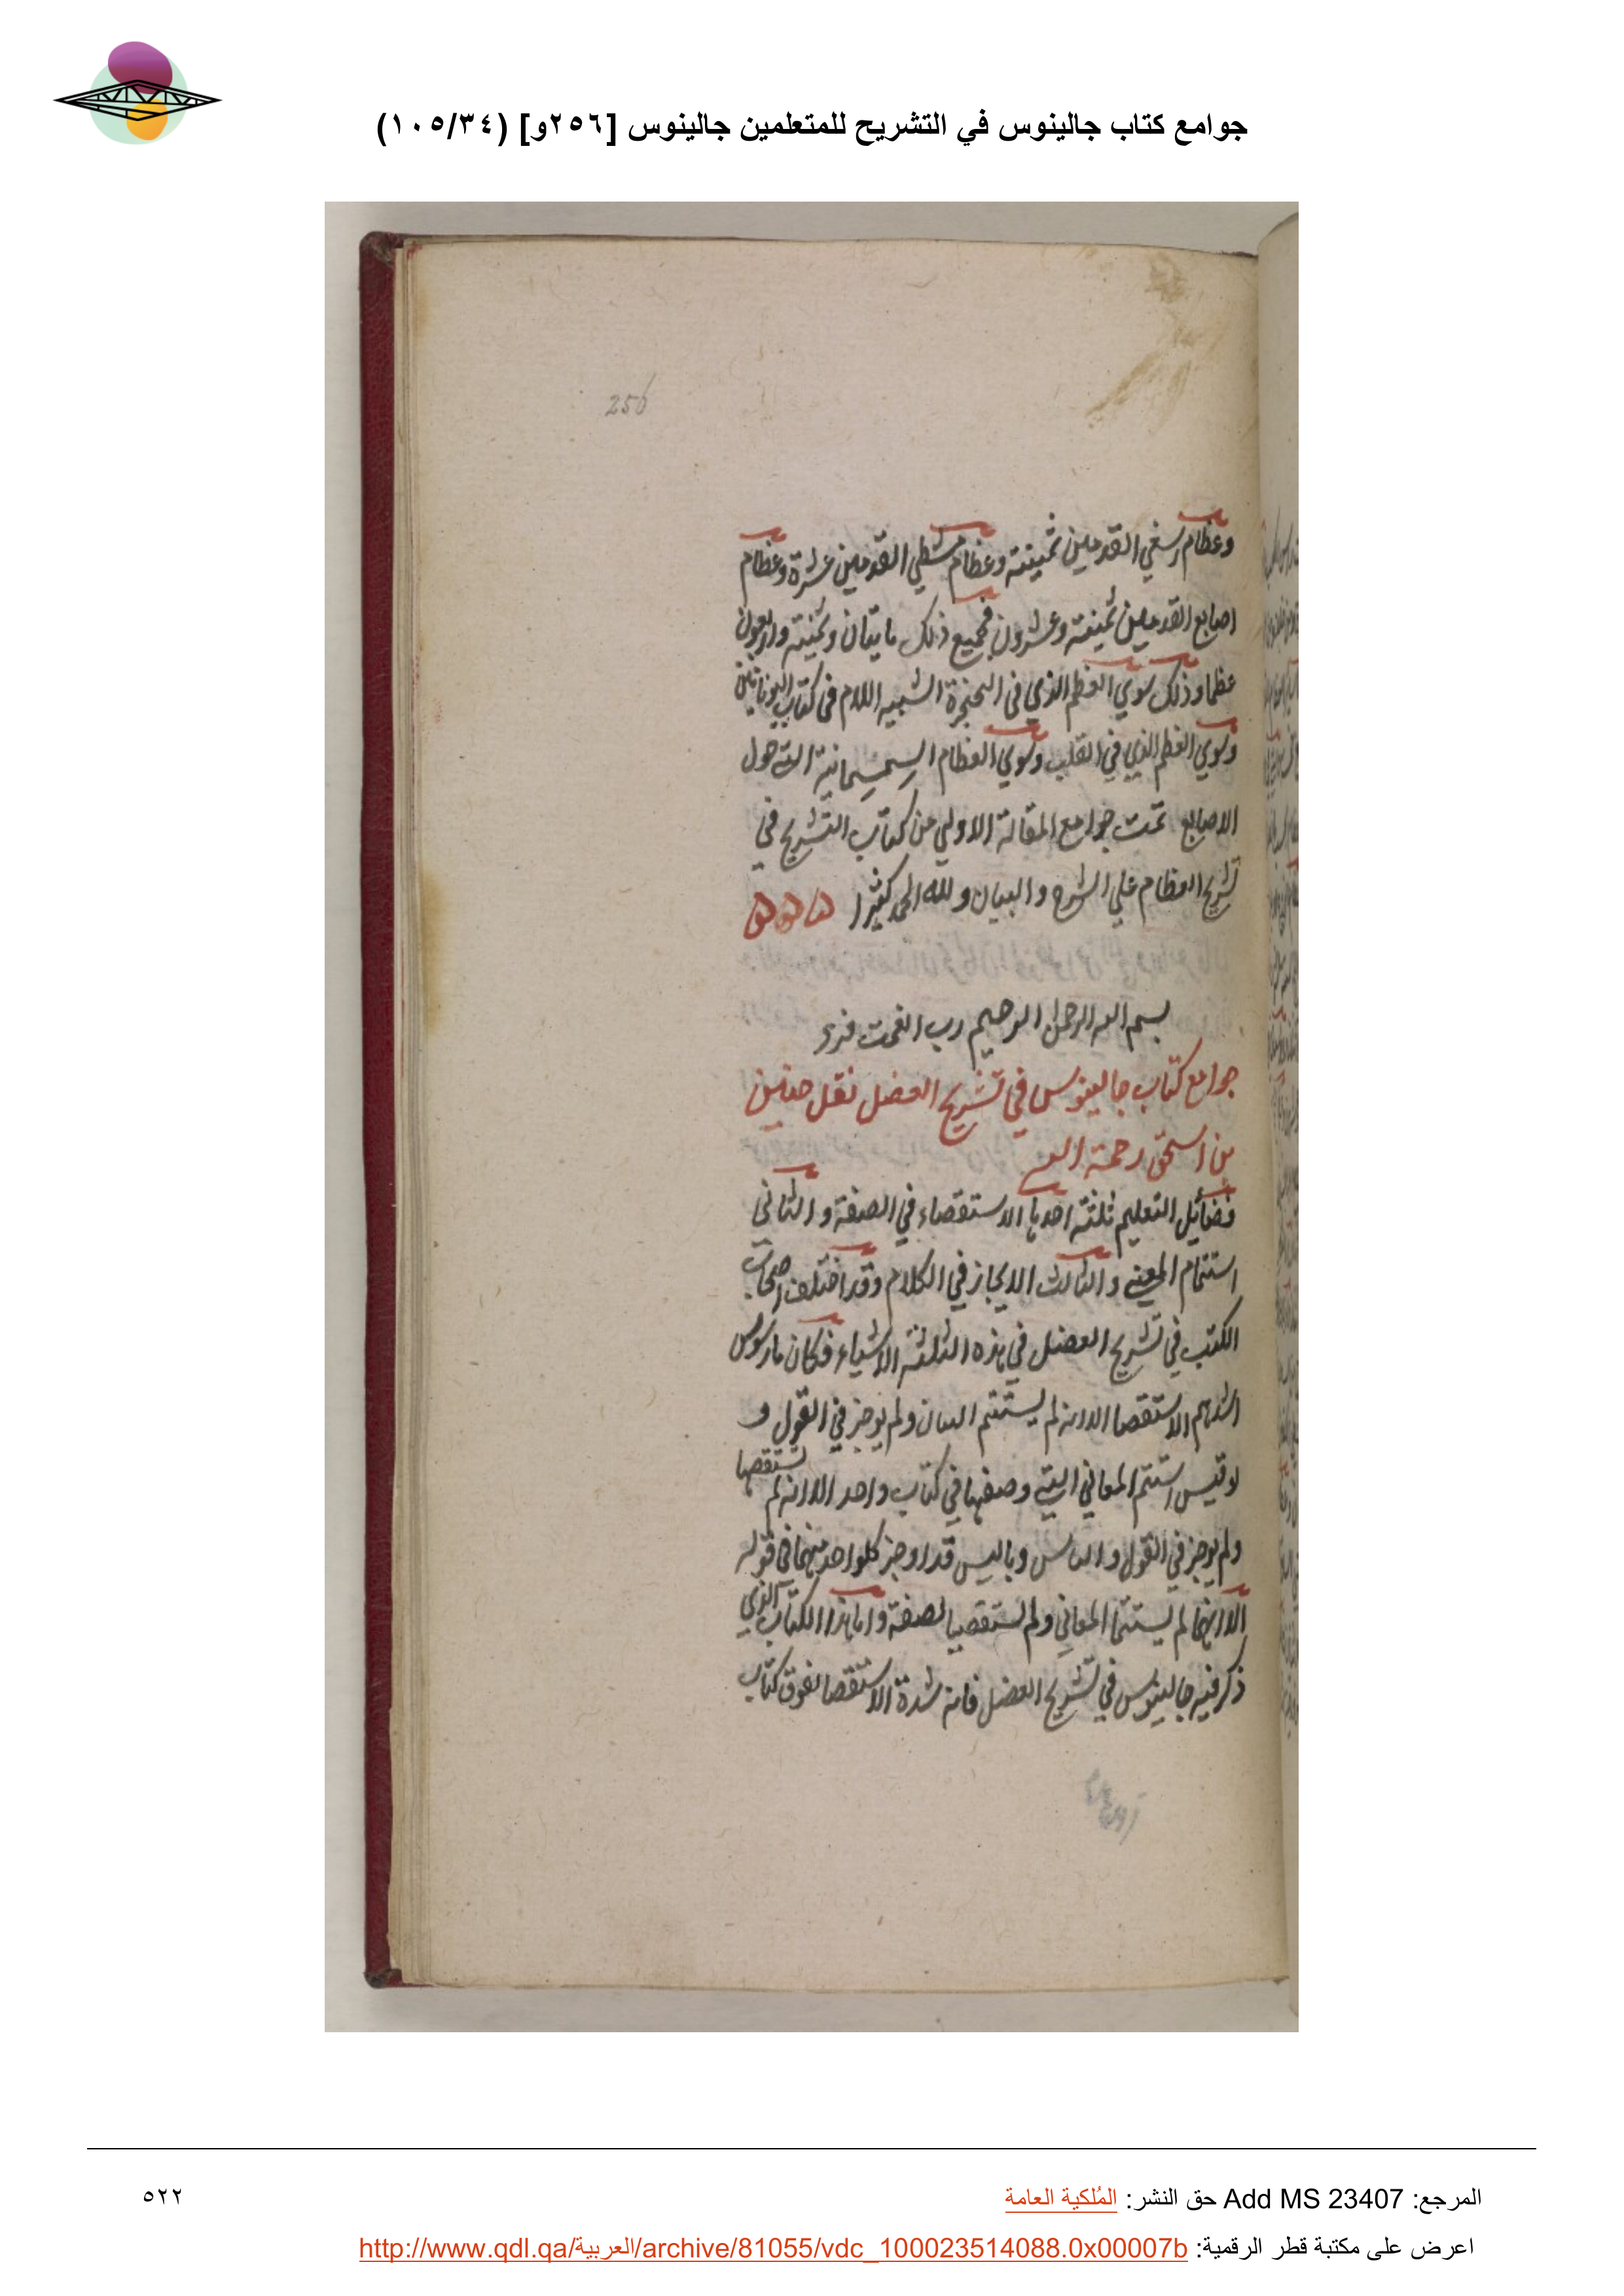 جوامع كتاب جالينوس في التشريح للمتعلمين جالينوس [٢٥٦و] (١٠٥/٣٤)
256
وعظام رسغي القدمين ثمنية وعظام مشطي القدمين عشرة وعظام
اصابع القدمين ثمنية وعشرون فجميع ذلك مايتان وثمنية واربعون
عظما وذلك سوي العظم الذي في الحنجرة الشبيه اللام في كتاب اليونانيين
وسوي العظم الذي في القلب وسوي العظام السمسمانية التي حول
الاصابع تمت جوامع المقالة الاولي من كتاب التشريح في
تشريح العظام علي الشرح والبيان ولله الحمد كثيرا ه ه ه
بسم الله الرحمن الرحيم رب انعمت فزد
جوامع كتاب جالينوس في تشريح العضل نقل حنين
بن اسحق رحمة الله
فضائل التعليم ثلثة احدها الاستقصاء في الصفة والثاني
استتمام المعني والثالث الايجاز في الكلام وقد اختلف اصحاب
الكتب في تشريح العضل في هذه الثلثة الاشياء فكان مارنوس
اشدهم الاستقصا الا انه لم يستتم البيان ولم يوجز في القول و
لوقيس استتم المعاني التي وصفها في كتاب واحد الا انه لم يستقصها
ولم يوجز في القول و وباليس قد اوجز كلواحد منهما في قوله
الا انهما لم يستتما المعاني ولم يستقصيا الصفة واما هذا الكتاب الذي
ذكر فيه جالينوس في تشريح العضل فانه شدة الاستقصا تفوق كتاب
المرجع: Add MS 23407 حق النشر: المُلكية العامة
٥٢٢
اعرض على مكتبة قطر الرقمية: http://www.qdl.qa/العربية/archive/81055/vdc_100023514088.0x00007b